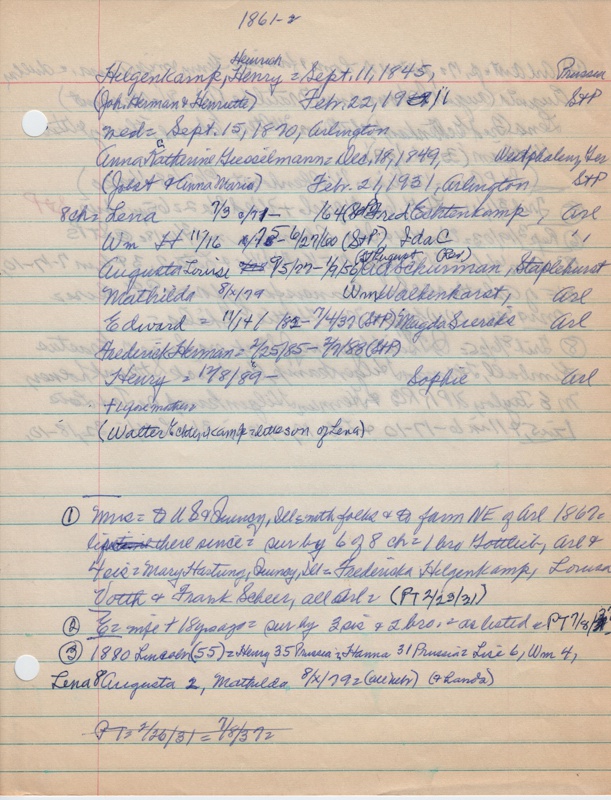 1861-2
Heinrich
Hilgenkamp, Henry = Sept. 11, 1845, Prussia
(Joh. Herman & Henriette) Feb. 22, 19 11 StP
wed = Sept. 15, 1870, Arlington
Anna Katharine Giesselmann = Dec. 18, 1849, Westphalen, Ger
(Jobst & Anna Maria) Feb. 21, 1931, Arlington StP
8 ch = Lena 7/3 /71 - /64 (StP) Fred Echtenkamp, Arl
Wm H 11/16 /75 - 6/27/60 (StP) Ida C "
(August) (Red)
Augusta Louise 9/5/77 - 1/9/56 Schurman, Staplehurst
Mathilda 8/x/79 Wm Walkenhorst, Arl
Edward = 11/14/ 82 - 7/4/37 (StP) Magda Sierks Arl
Frederick Herman = 2/25/85 - 2/9/88 (StP)
Henry = 12/8/89 - Sophie Arl
(Walter Echtenkamp = son of Lena)
① Mrs = to US & Quincy, Ill = with folks & to farm NE of Arl 1867 =
there since = sur by 6 of 8 ch = 1 bro Gottlieb, Arl &
4 sis = Mary Hastung, Quincy, Ill = Fredericka Hilgenkamp, Louisa
Voith & Frank Scheer, all Arl = (PT 2/23/31)
② E = wife + 18 yrs ago = sur by 3 sis & 2 bro. = as listed = PT 7/8/
③ 1880 Lincoln (55) = Henry 35 Prussia = Hanna 31 Prussia = Lise 6, Wm 4,
Lena 8 Augusta 2, Mathilda 8/x/79 = (all Nebr) (& Landa)
PT = 2/26/31 = 7/8/37 =